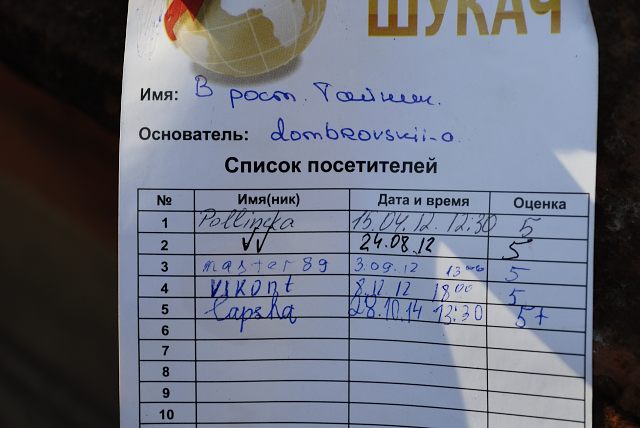 ШУКАЧ
Имя: В рост. Тайник.
Основатель: dombrovskii-o
Список посетителей
№ Имя(ник) Дата и время Оценка
1 Pollincka 15.04.12. 12:30 5
2 VV 24.08.12 5
3 master89 3.09.12 13⁰⁰ 5
4 VIKONT 8.12.12 18⁰⁰ 5
5 Lapsha 28.10.14 13:30 5+
6
7
8
9
10